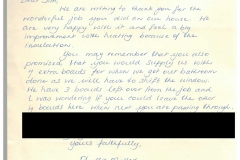 Dear Sir,
We are writing to thank you for the
wonderful job you did on our house. We
are very happy with it and feel a big
improvement with heating because of the
insulation.
You may remember that you also
promised that you would supply us with
4 extra boards for when we get our bathroom
done as we will have to shift the window.
We have 3 boards left over from the job and
I was wondering if you could leave the other
4 boards here when next you are passing through.
Yours faithfully,